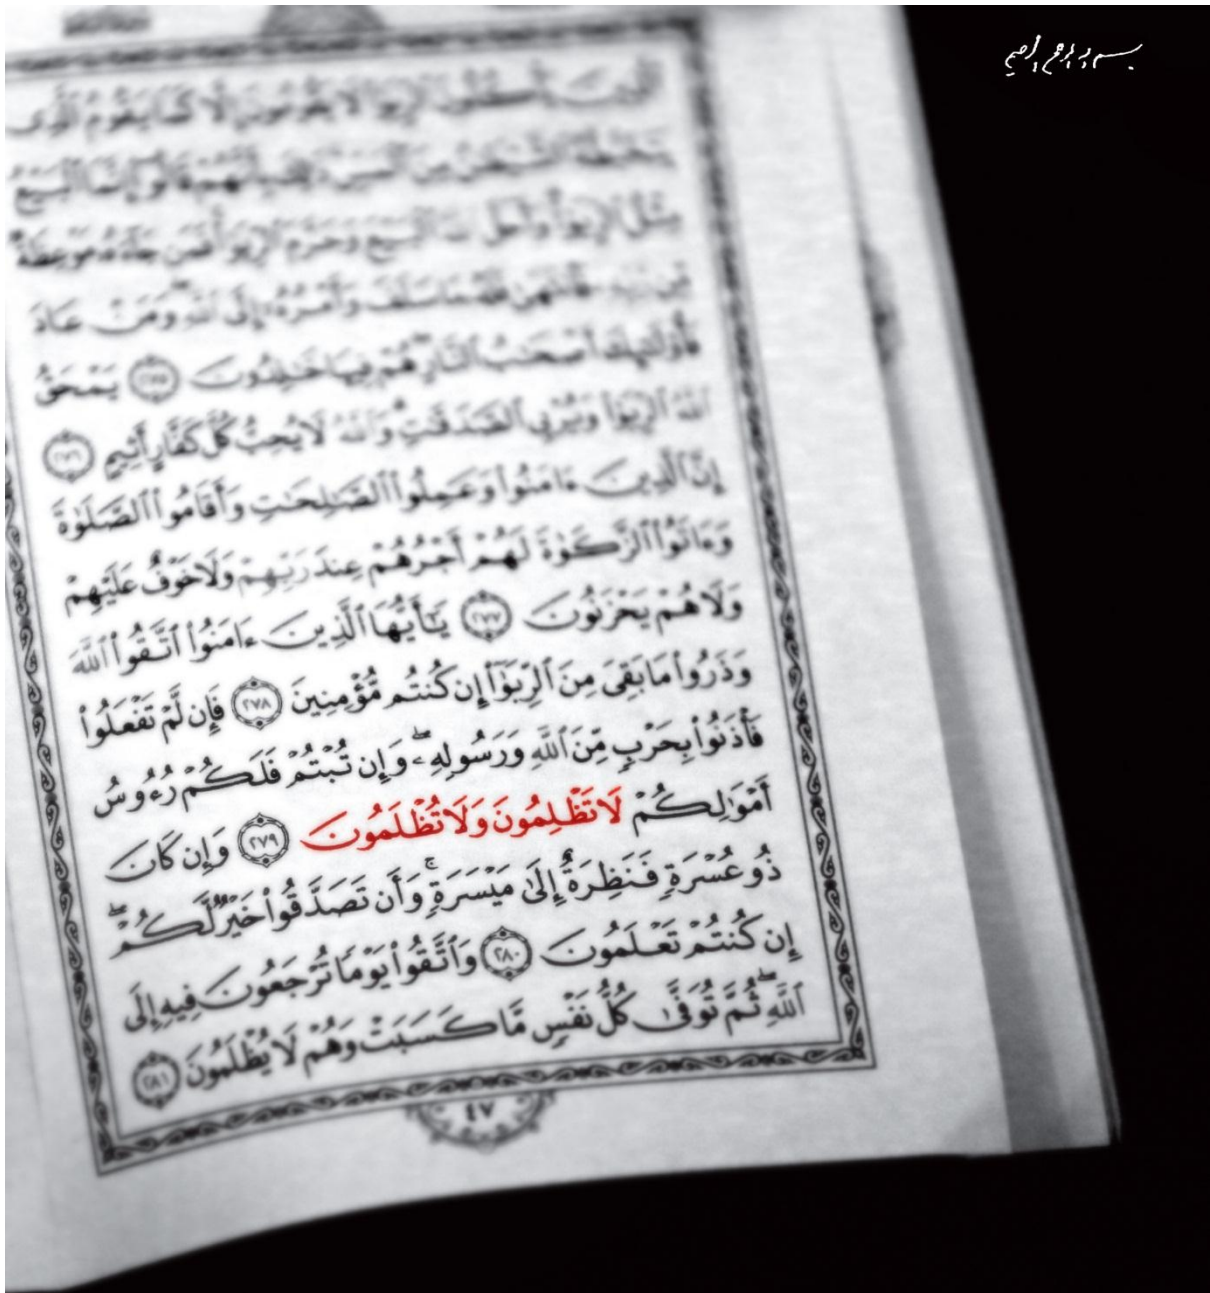 بسم الله الرحمن الرحيم
ٱلَّذِينَ يَأْكُلُونَ ٱلرِّبَوٰا۟ لَا يَقُومُونَ إِلَّا كَمَا يَقُومُ ٱلَّذِى
يَتَخَبَّطُهُ ٱلشَّيْطَٰنُ مِنَ ٱلْمَسِّ ذَٰلِكَ بِأَنَّهُمْ قَالُوٓا۟ إِنَّمَا ٱلْبَيْعُ
مِثْلُ ٱلرِّبَوٰا۟ وَأَحَلَّ ٱللَّهُ ٱلْبَيْعَ وَحَرَّمَ ٱلرِّبَوٰا۟ فَمَن جَآءَهُۥ مَوْعِظَةٌ
مِّن رَّبِّهِۦ فَٱنتَهَىٰ فَلَهُۥ مَا سَلَفَ وَأَمْرُهُۥٓ إِلَى ٱللَّهِ وَمَنْ عَادَ
فَأُو۟لَٰٓئِكَ أَصْحَٰبُ ٱلنَّارِ هُمْ فِيهَا خَٰلِدُونَ ٢٧٥ يَمْحَقُ
ٱللَّهُ ٱلرِّبَوٰا۟ وَيُرْبِى ٱلصَّدَقَٰتِ وَٱللَّهُ لَا يُحِبُّ كُلَّ كَفَّارٍ أَثِيمٍ ٢٧٦
إِنَّ ٱلَّذِينَ ءَامَنُوا۟ وَعَمِلُوا۟ ٱلصَّٰلِحَٰتِ وَأَقَامُوا۟ ٱلصَّلَوٰةَ
وَءَاتَوُا۟ ٱلزَّكَوٰةَ لَهُمْ أَجْرُهُمْ عِندَ رَبِّهِمْ وَلَا خَوْفٌ عَلَيْهِمْ
وَلَا هُمْ يَحْزَنُونَ ٢٧٧ يَٰٓأَيُّهَا ٱلَّذِينَ ءَامَنُوا۟ ٱتَّقُوا۟ ٱللَّهَ
وَذَرُوا۟ مَا بَقِىَ مِنَ ٱلرِّبَوٰٓا۟ إِن كُنتُم مُّؤْمِنِينَ ٢٧٨ فَإِن لَّمْ تَفْعَلُوا۟
فَأْذَنُوا۟ بِحَرْبٍ مِّنَ ٱللَّهِ وَرَسُولِهِۦ ۖ وَإِن تُبْتُمْ فَلَكُمْ رُءُوسُ
أَمْوَٰلِكُمْ لَا تَظْلِمُونَ وَلَا تُظْلَمُونَ ٢٧٩ وَإِن كَانَ
ذُو عُسْرَةٍ فَنَظِرَةٌ إِلَىٰ مَيْسَرَةٍ ۚ وَأَن تَصَدَّقُوا۟ خَيْرٌ لَّكُمْ ۖ
إِن كُنتُمْ تَعْلَمُونَ ٢٨٠ وَٱتَّقُوا۟ يَوْمًا تُرْجَعُونَ فِيهِ إِلَى
ٱللَّهِ ۖ ثُمَّ تُوَفَّىٰ كُلُّ نَفْسٍ مَّا كَسَبَتْ وَهُمْ لَا يُظْلَمُونَ ٢٨١
٤٧